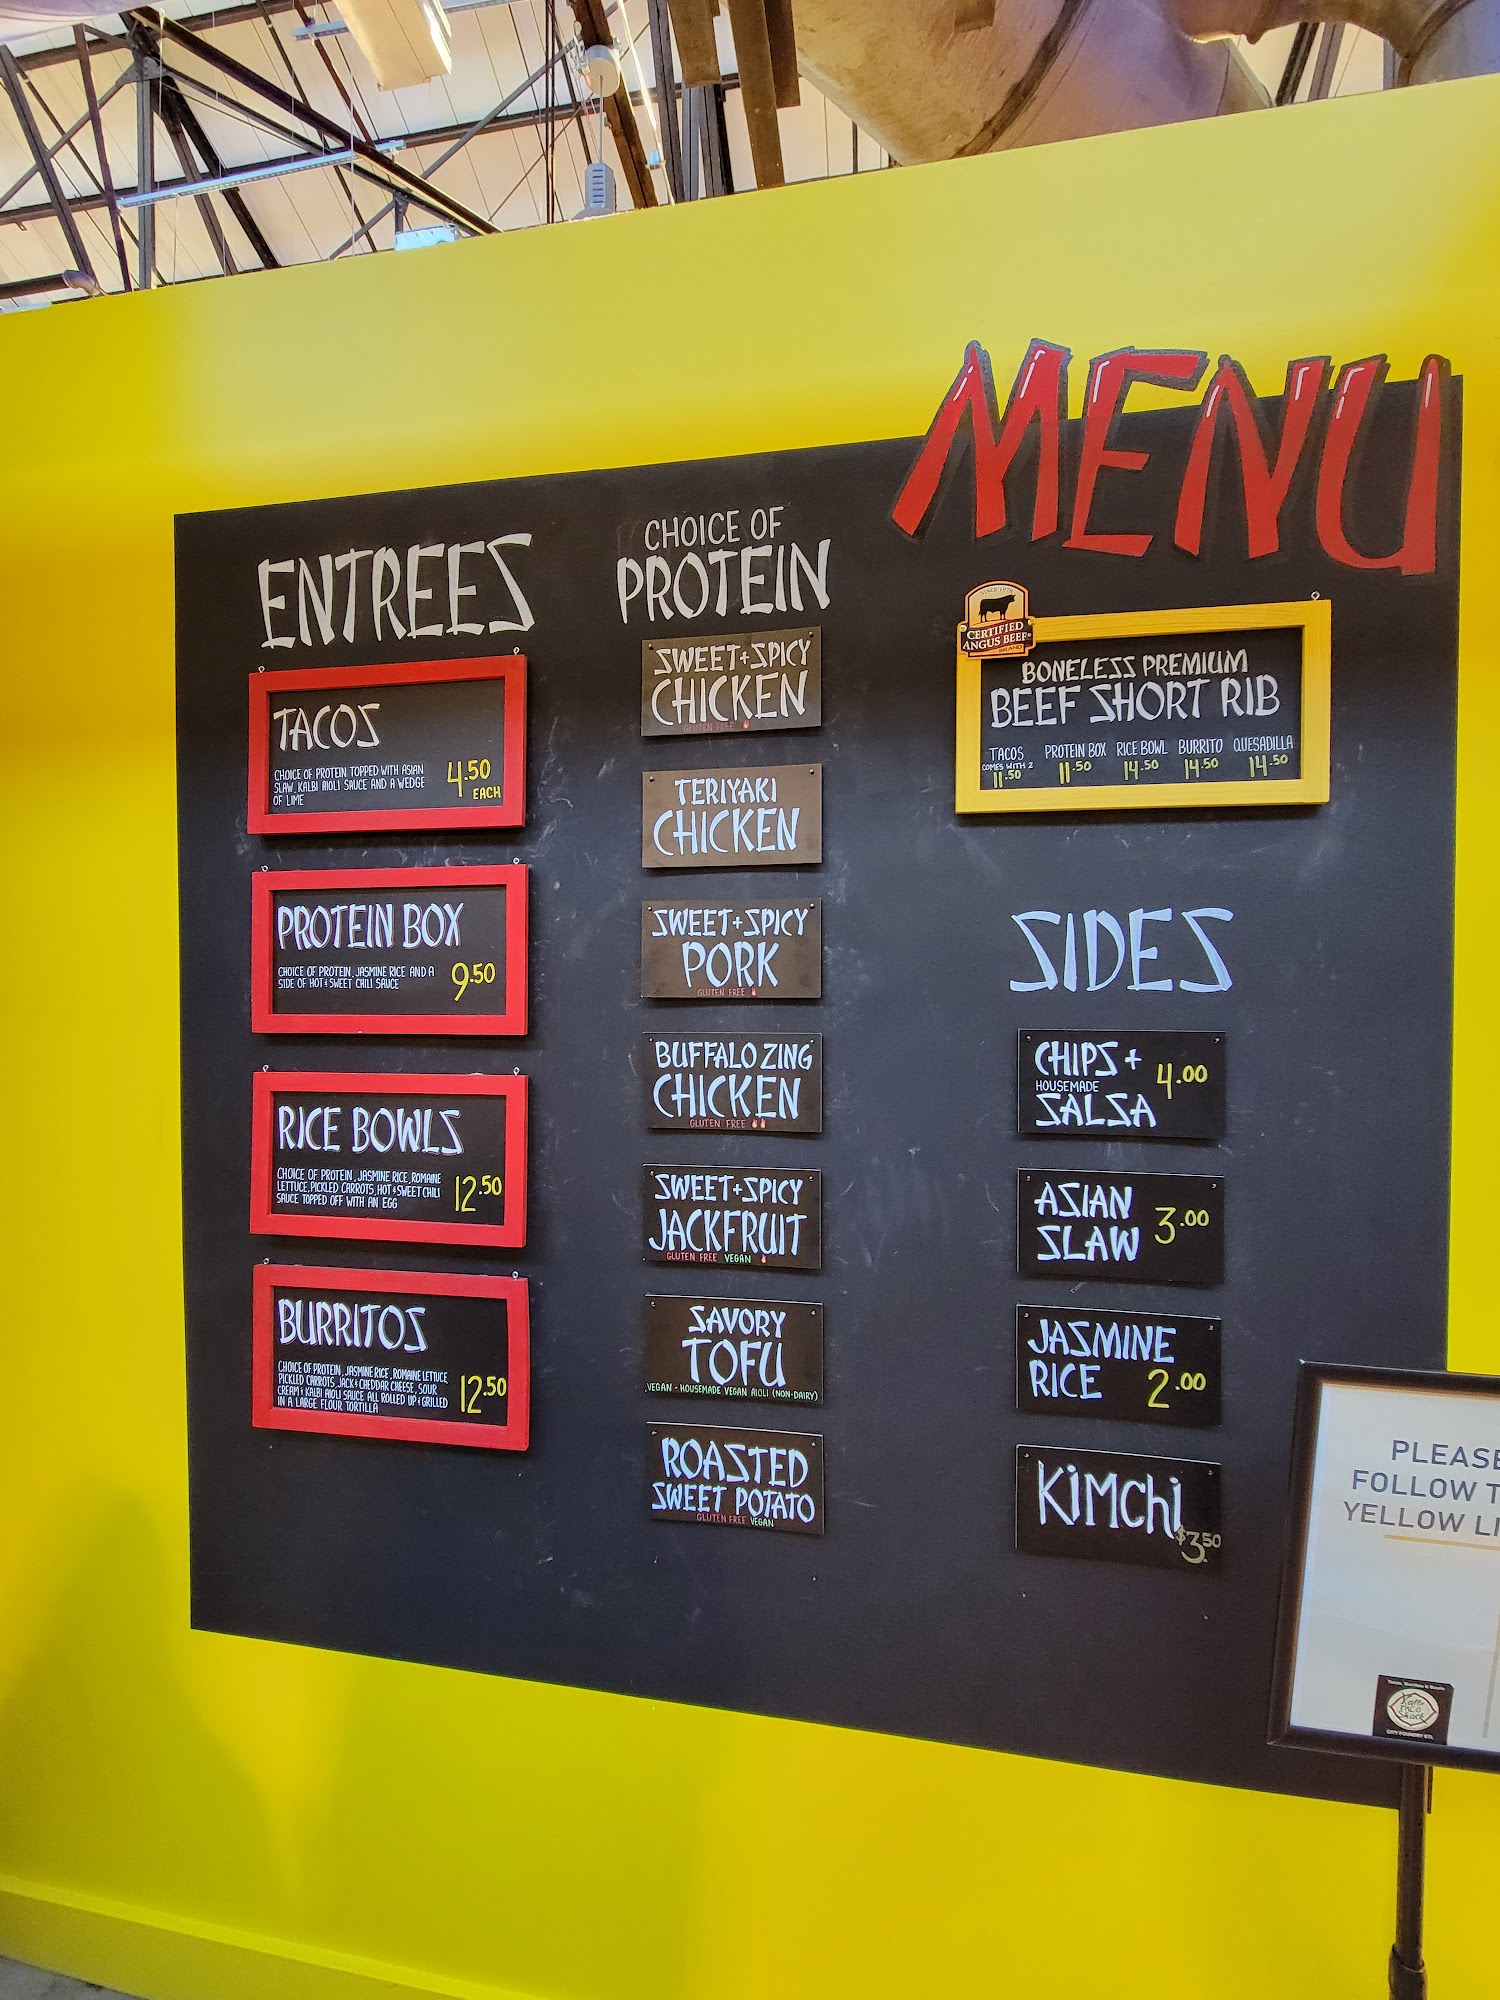 MENU
ENTREES
TACOS
CHOICE OF PROTEIN TOPPED WITH ASIAN
SLAW, KALBI AIOLI SAUCE AND A WEDGE
OF LIME
4.50
EACH
PROTEIN BOX
CHOICE OF PROTEIN, JASMINE RICE AND A
SIDE OF HOT & SWEET CHILI SAUCE
9.50
RICE BOWLS
CHOICE OF PROTEIN, JASMINE RICE, ROMAINE
LETTUCE, PICKLED CARROTS, HOT & SWEET CHILI
SAUCE TOPPED OFF WITH AN EGG
12.50
BURRITOS
CHOICE OF PROTEIN, JASMINE RICE, ROMAINE LETTUCE
PICKLED CARROTS, JACK & CHEDDAR CHEESE, SOUR
CREAM & KALBI AIOLI SAUCE ALL ROLLED UP & GRILLED
IN A LARGE FLOUR TORTILLA
12.50
CHOICE OF
PROTEIN
SWEET + SPICY
CHICKEN
GLUTEN FREE
TERIYAKI
CHICKEN
SWEET + SPICY
PORK
GLUTEN FREE
BUFFALO ZING
CHICKEN
GLUTEN FREE
SWEET + SPICY
JACKFRUIT
GLUTEN FREE VEGAN
SAVORY
TOFU
VEGAN - HOUSEMADE VEGAN AIOLI (NON-DAIRY)
ROASTED
SWEET POTATO
GLUTEN FREE VEGAN
SINCE 1978
CERTIFIED
ANGUS BEEF®
BRAND
BONELESS PREMIUM
BEEF SHORT RIB
TACOS PROTEIN BOX RICE BOWL BURRITO QUESADILLA
COMES WITH 2
11.50 11.50 14.50 14.50 14.50
SIDES
CHIPS +
HOUSEMADE
SALSA
4.00
ASIAN
SLAW
3.00
JASMINE
RICE
2.00
KiMChi
$3.50
PLEASE
FOLLOW T
YELLOW LI
Kalbi
TACO
Shack
CITY FOUNDRY STL